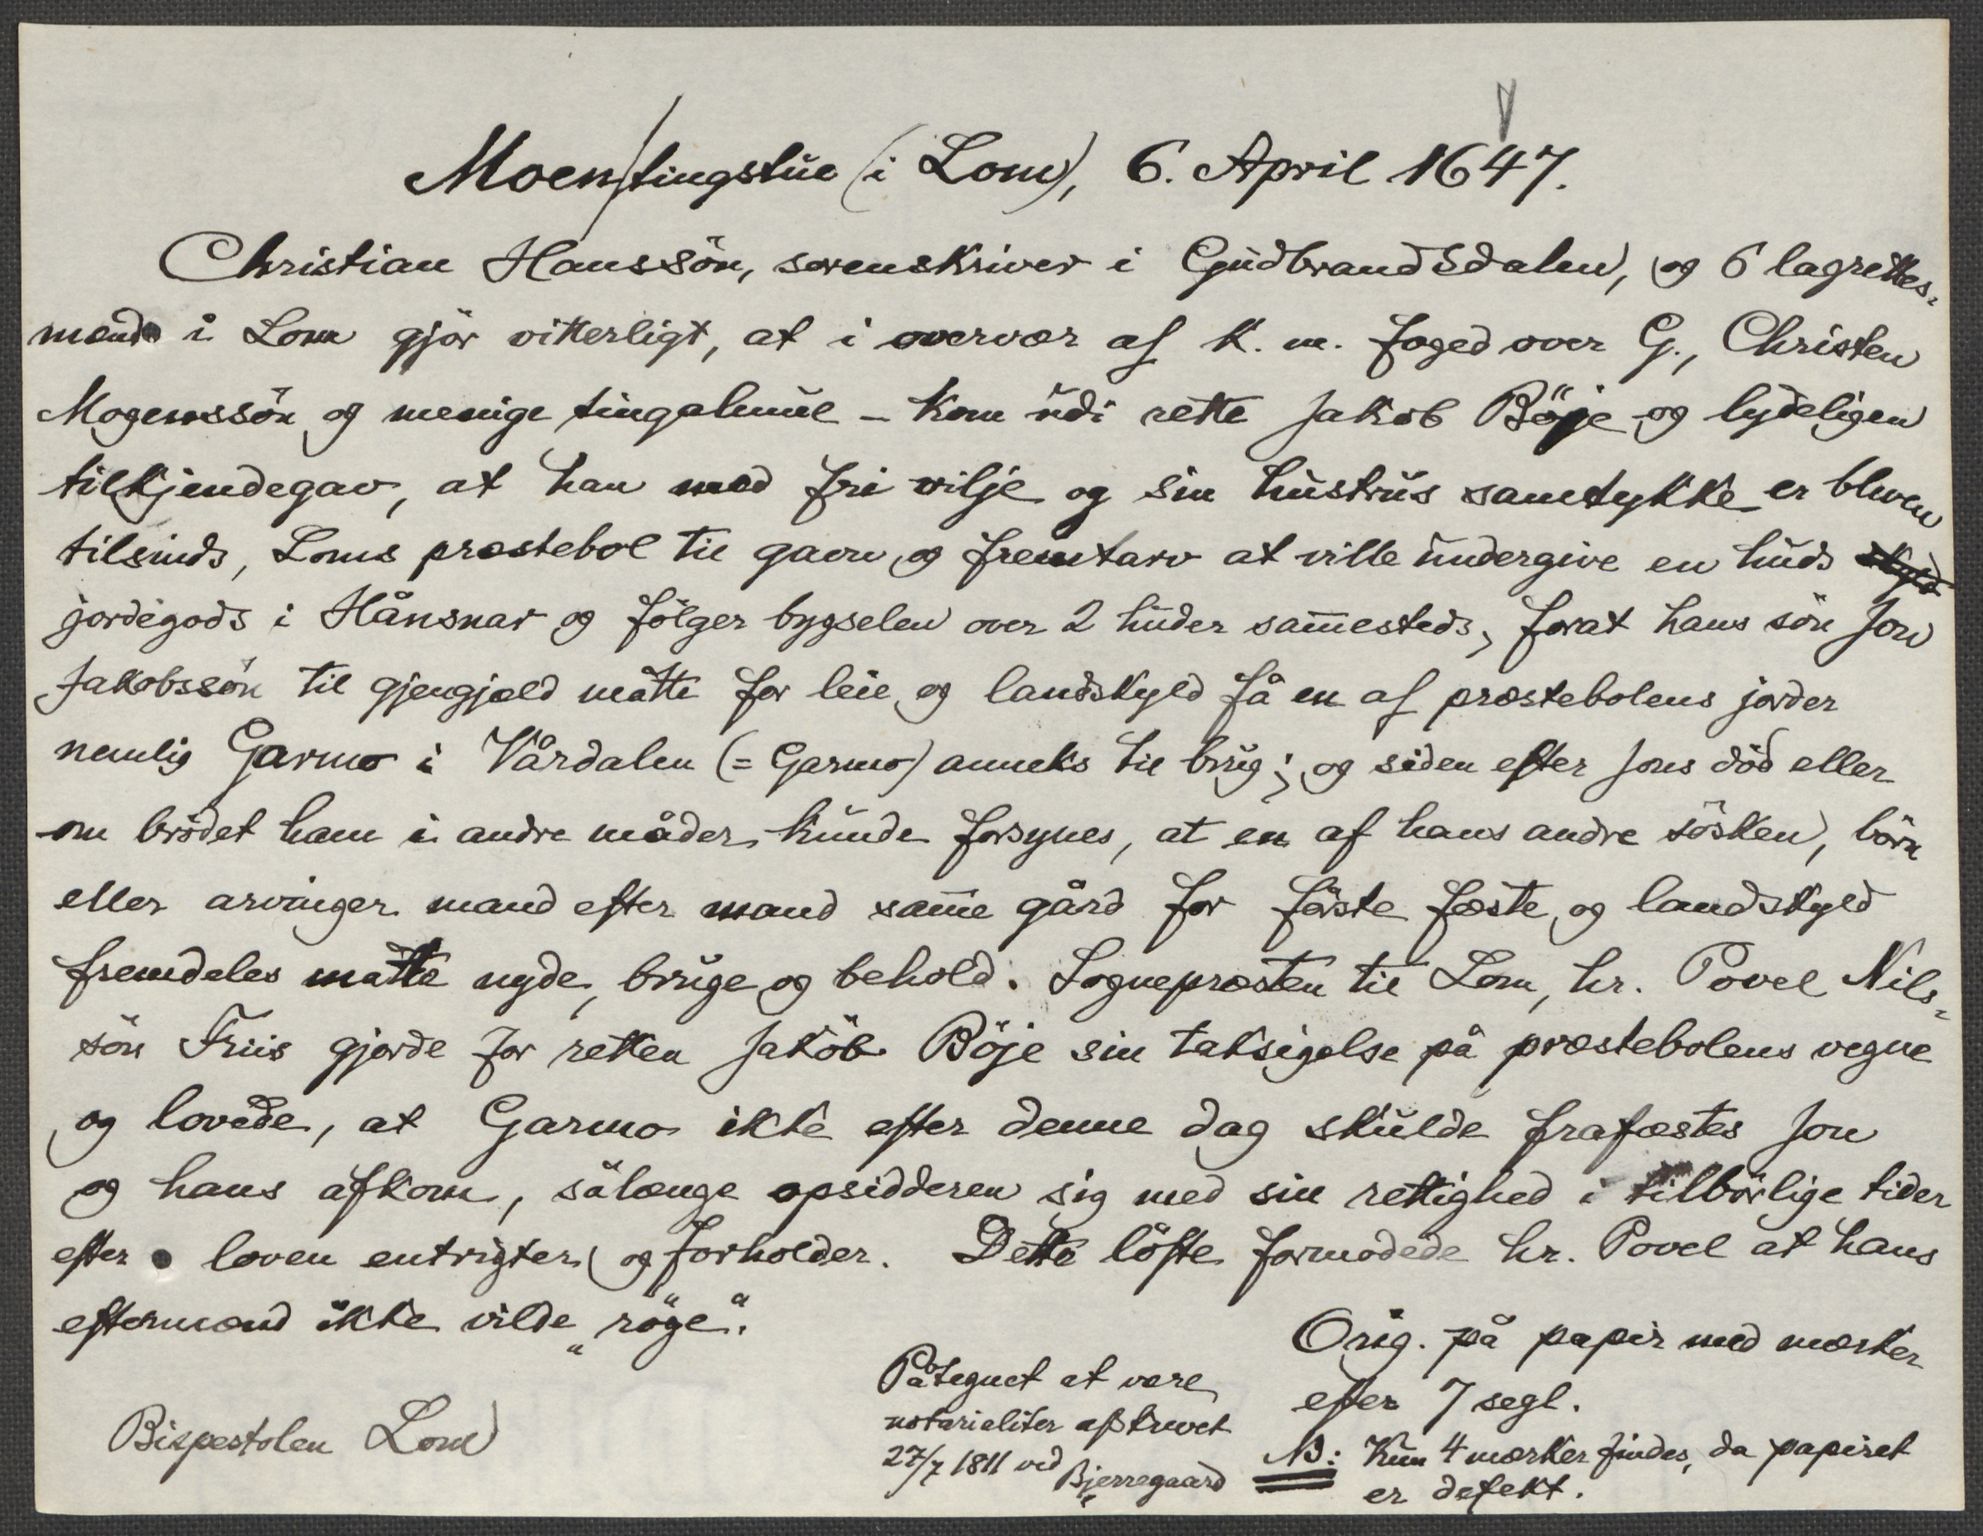 Moen/tingstue (i Lom), 6. April 1647.
Christian Hanssön, sorenskriver i Gudbrandsdalen, og 6 lagrettes-
mænd i Lom gjör vitterligt, at i overvær af k. m. foged over G., Christen
Mogenssön og menige tingalmue – kom udi rette Jakob Böje og lydeligen
tilkjendegav, at han med fri vilje og sin hustrus samtykke er bleven
tilsinds, Loms præstebol til gavn og fremtarv at ville undergive en huds skyld
jordegods i Hånsnar og fölger bygselen over 2 huder sam̅esteds, forat hans sön Jon
Jakobssön til gjengjæld måtte for leie og landskyld få en af præstebolens jorder
nemlig Garmo i Vårdalen (= Garmo) anneks til brug; og siden efter Jons död eller
om brödet ham i andre måder kunde forsynes, at en af hans andre sösken, börn
eller arvinger mand efter mand sam̅e gård for förste fæste og landskyld
fremdeles måtte nyde, bruge og behold. Sognepræsten til Lom, hr. Povel Nils-
sön Friis gjorde for retten Jakob Böje sin taksigelse på præstebolens vegne
og lovede, at Garmo ikke efter denne dag skulde frafæstes Jon
og hans afkom, sålænge opsidderen sig med sin rettighed i tilbörlige tider
efter loven entrigter og forholder. Dette löfte formodede hr. Povel at hans
eftermænd ikke vilde „röge“.
Orig. på papir med mærker
efter 7 segl.
NB: Kun 4 mærker findes, da papiret
er defekt.
Påtegnet at være
notarialiter afskrevet
27/7 1811 ved
Bjerregaard
Bispestolen Lom